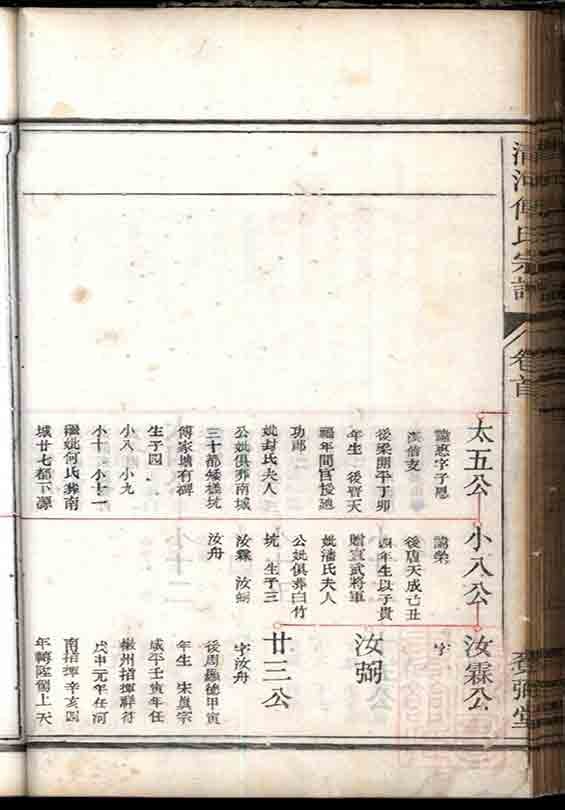 清河傅氏宗譜
卷首
太五公
諱惠字子恩
漢傑支
後梁開平丁卯
年生 後晉天
福年間官授迪
功郎
妣封氏夫人
公妣俱葬南城
三十都矮樣坑
傅家塘有碑
生子四
小八 小九
小十 小十一
繼妣何氏葬南
城廿七都下源
小八公
諱榮
後唐天成己丑
四年生以子貴
贈宣武將軍
妣潘氏夫人
公妣俱葬白竹
坑 生子三
汝霖 汝弼
汝舟
汝霖公
字
汝弼
廿三公
字汝舟
後周顯德甲寅
年生 宋真宗
咸平壬寅年任
徽州指揮祥符
戊申元年任河
南指揮辛亥四
年轉陞蜀上天